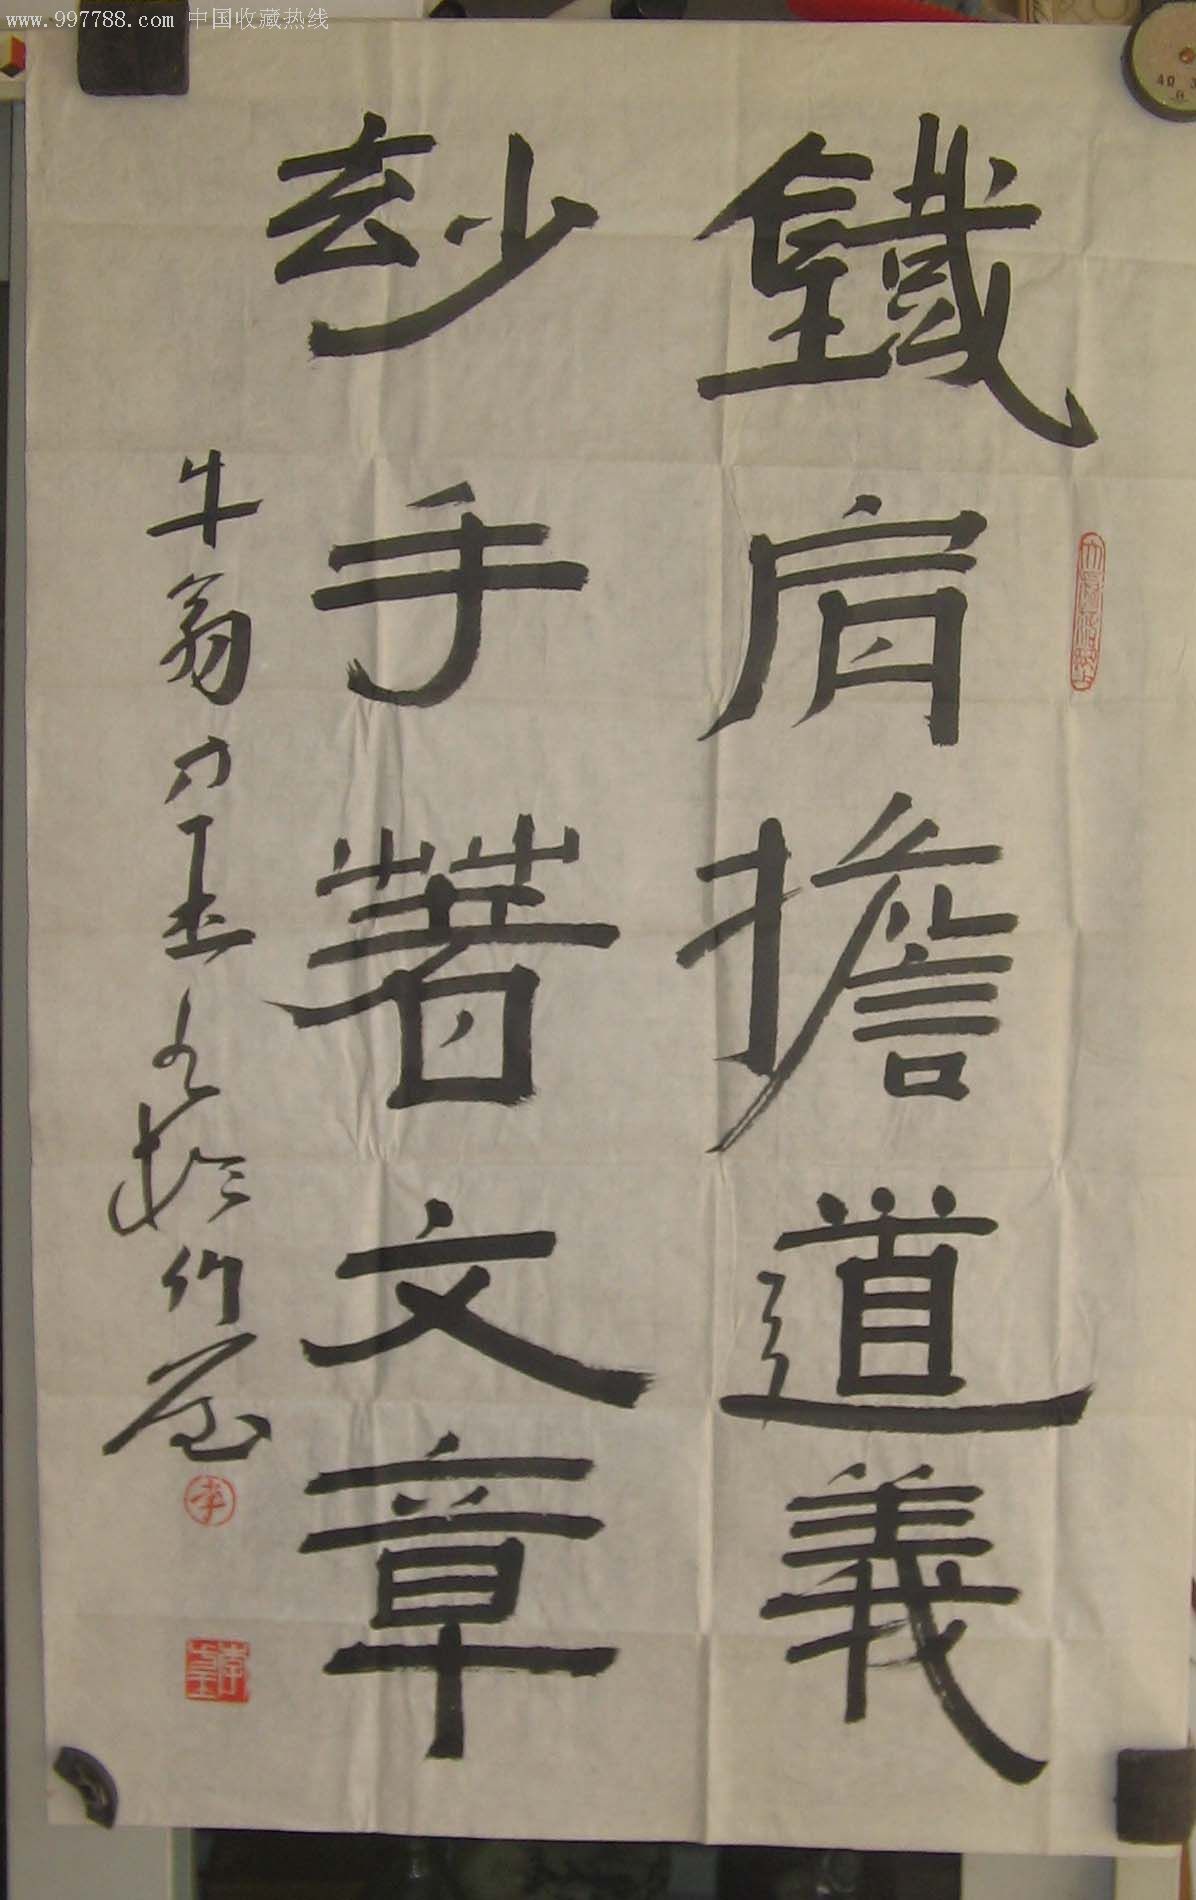 www.997788.com 中国收藏热线
鐵肩擔道義
玅手著文章
牛翁力玉書於竹屋
李